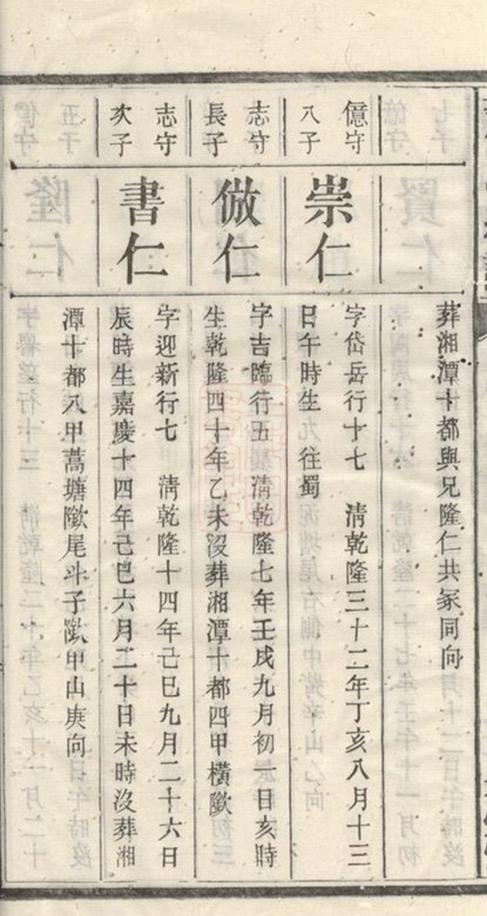 葬湘潭十都與兄隆仁共冢同向
億守
八子
崇仁
字岱岳行十七　清乾隆三十二年丁亥八月十三
日午時生　往蜀
志守
長子
倣仁
字吉臨行五　清乾隆七年壬戌九月初一日亥時
生乾隆四十年乙未沒葬湘潭十都四甲橫歞
志守
次子
書仁
字迎新行七　清乾隆十四年己巳九月二十六日
辰時生嘉慶十四年己巳六月二十日未時沒葬湘
潭十都八甲蒿塘歞尾斗子歞甲山庚向